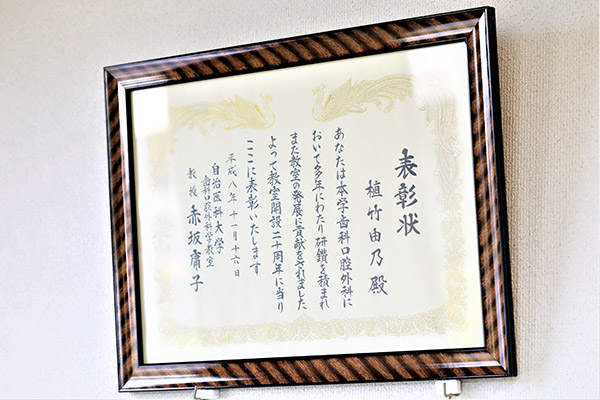 表彰状
植竹由乃殿
あなたは本学歯科口腔外科に
おいて多年にわたり研鑽を積まれ
また教室の発展に貢献をされました
よって教室開設二十周年に当り
ここに表彰いたします
平成八年十一月十六日
自治医科大学
歯科口腔外科学教室
教授 赤坂庸子